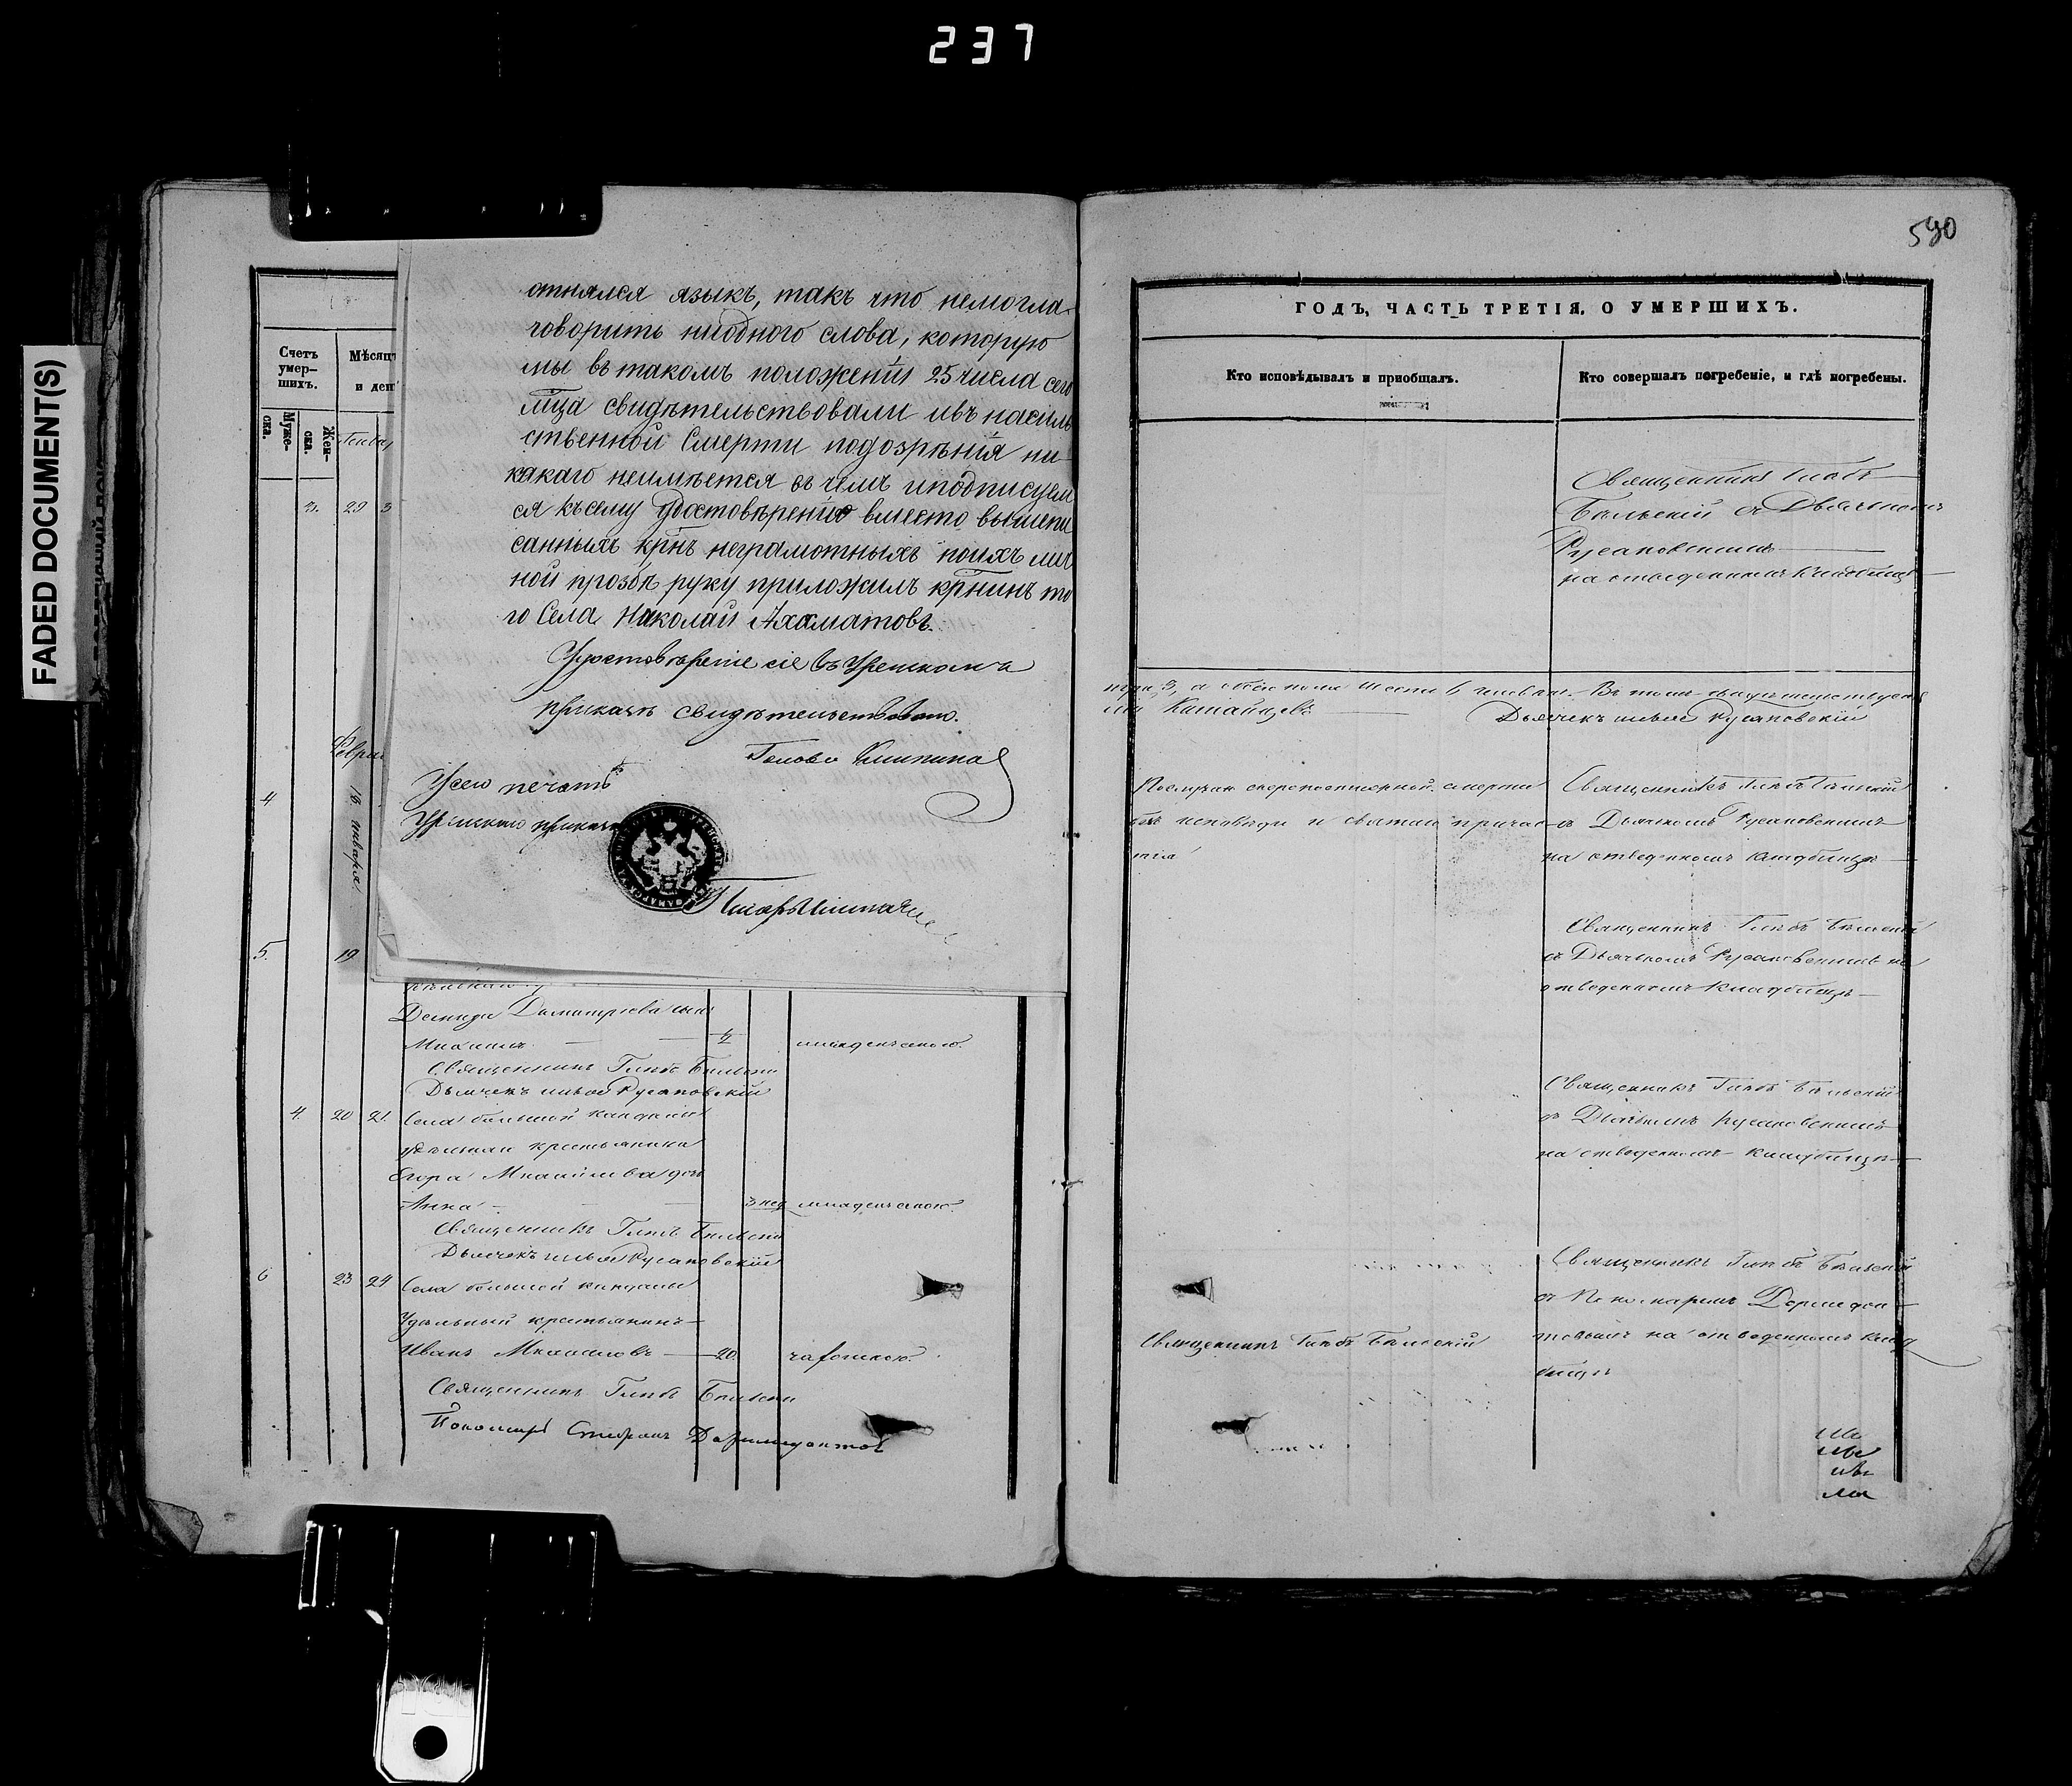 237
FADED DOCUMENT(S)
590
Счетъ умер-
шихъ.
Муже-
ска.
Жен-
ска.
Мѣсяц
и ден
3. 29 3
4
18. января.
5. 19
отнялся языкъ, такъ что немогла
говорить ниодного слова, которую
мы въ такомъ положеніи 25 числа сего
мца свидѣтельствовали ивъ насиль
ственной Смерти подозрѣнія ни-
какаго неимѣется въ чемъ иподписуем
ся къ сему удостовѣренію вместо вышепи
санныхъ крнъ неграмотныхъ поихъ лич
ной прозбѣ руку приложилъ крнинъ то
го Села Николай Ахаматовъ.
Удостовѣреніе сіе въ
приказѣ свидѣтельствовано.
Голова
У сего печать
приказа
Демида Димитріева сынъ
Михаилъ — — 1/2 младенческою.
Священникъ Глѣбъ Бѣльскій
Дьячекъ Русановскій
4. 20 21. Села большой Кандалы
удѣльнаго крестьянина
Егора Михайлова дочь
Анна — — 3 нед младенческою.
Священникъ Глѣбъ Бѣльскій
Дьячекъ Русановскій
6 23 24 Села большой Кандалы
Удѣльный крестьянинъ
Иванъ Михаиловъ — 20. чахоткою.
Священникъ Глѣбъ Бѣльскій
Пономарь Стефанъ Дормидонтовъ
ГОДЪ, ЧАСТЬ ТРЕТІЯ, О УМЕРШИХЪ.
Кто исповѣдывалъ и пріобщалъ.
Кто совершалъ погребеніе, и гдѣ погребены.
Священникъ Глѣбъ
Бѣльскій съ Дьячкомъ
Русановскимъ
на отведенномъ кладбищѣ
Дьячекъ Русановскій
По случаю скоропостижной смерти
безъ исповѣди и святаго причас-
тія
Священникъ Глѣбъ Бѣльскій
съ Дьячкомъ Русановскимъ
на отведенномъ кладбищѣ
Священникъ Глѣбъ Бѣльскій
съ Дьячкомъ Русановскимъ на
отведенномъ кладбищѣ
Священникъ Глѣбъ Бѣльскій
съ Дьячкомъ Русановскимъ
на отведенномъ кладбищѣ
Священникъ Глѣбъ Бѣльскій
Священникъ Глѣбъ Бѣльскій
съ Пономаремъ Дормидон-
товымъ на отведенномъ клад
бищѣ